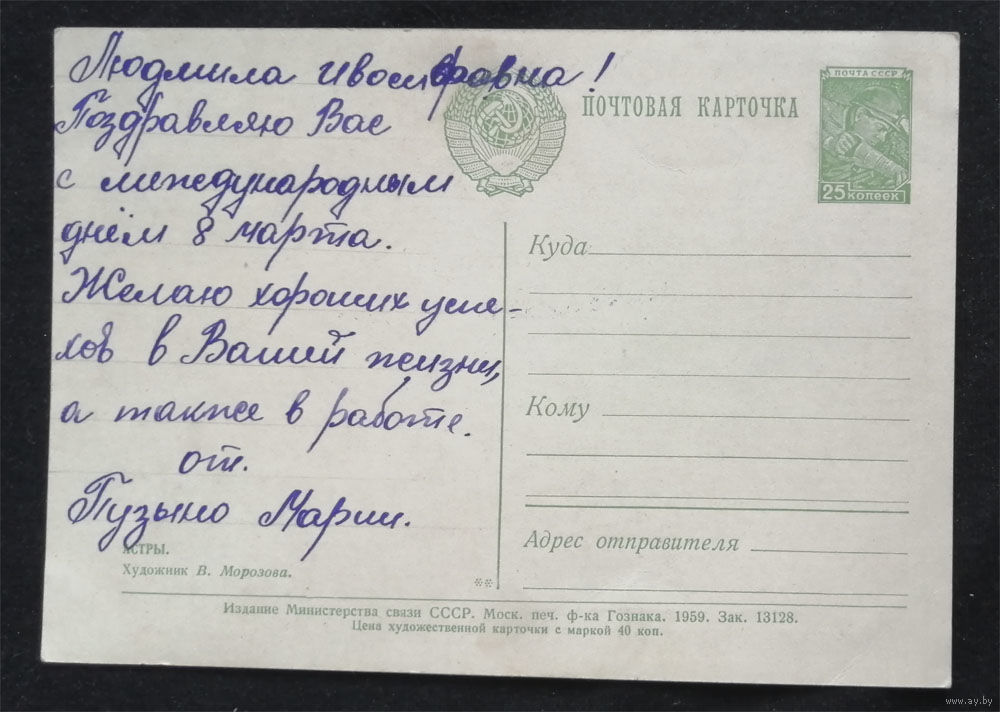 Людмила
Поздравляю Вас
с международным
днём 8 марта.
Желаю хороших успе-
хов в Вашей жизни,
а также в работе.
от.
Пузыно Марии.
АСТРЫ.
Художник В. Морозова.
ПОЧТОВАЯ КАРТОЧКА
ПОЧТА СССР
25 КОПЕЕК
Куда
Кому
Адрес отправителя
**
Издание Министерства связи СССР. Моск. печ. ф-ка Гознака. 1959. Зак. 13128.
Цена художественной карточки с маркой 40 коп.
www.ay.by